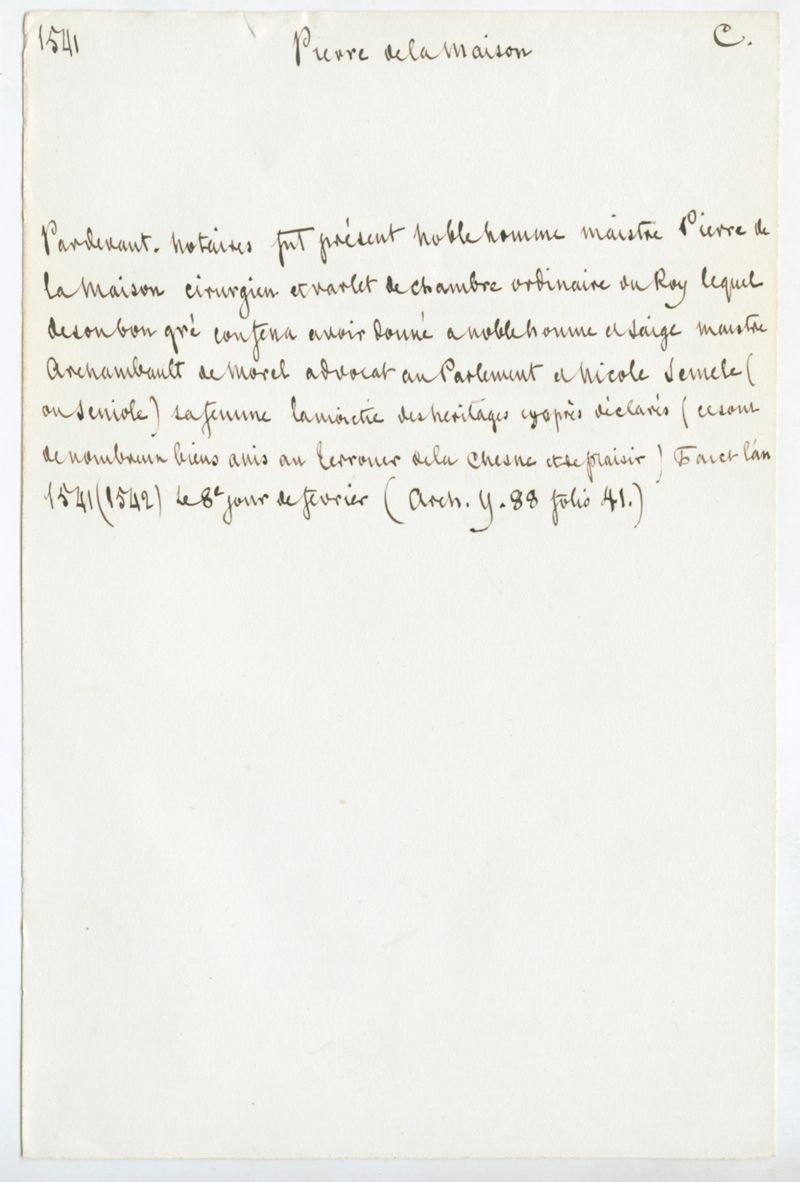 1541 Pierre de la Maison C.
Pardevant. notaires fut présent noble homme maistre Pierre de
la Maison cirurgien et varlet de chambre ordinaire du Roy lequel
de son bon gré confessa avoir donné a noble homme et saige maistre
Archambault de Morel advocat au Parlement et Nicole Semele (
ou Seniole) sa femme la moictié des heritages cy après déclarés (ce sont
de nombreux biens assis au terrouer de la Chesne et de plaisir) Faict l'an
1541 (1542) le 8e jour de fevrier (Arch. Y. 88 folio 41.)